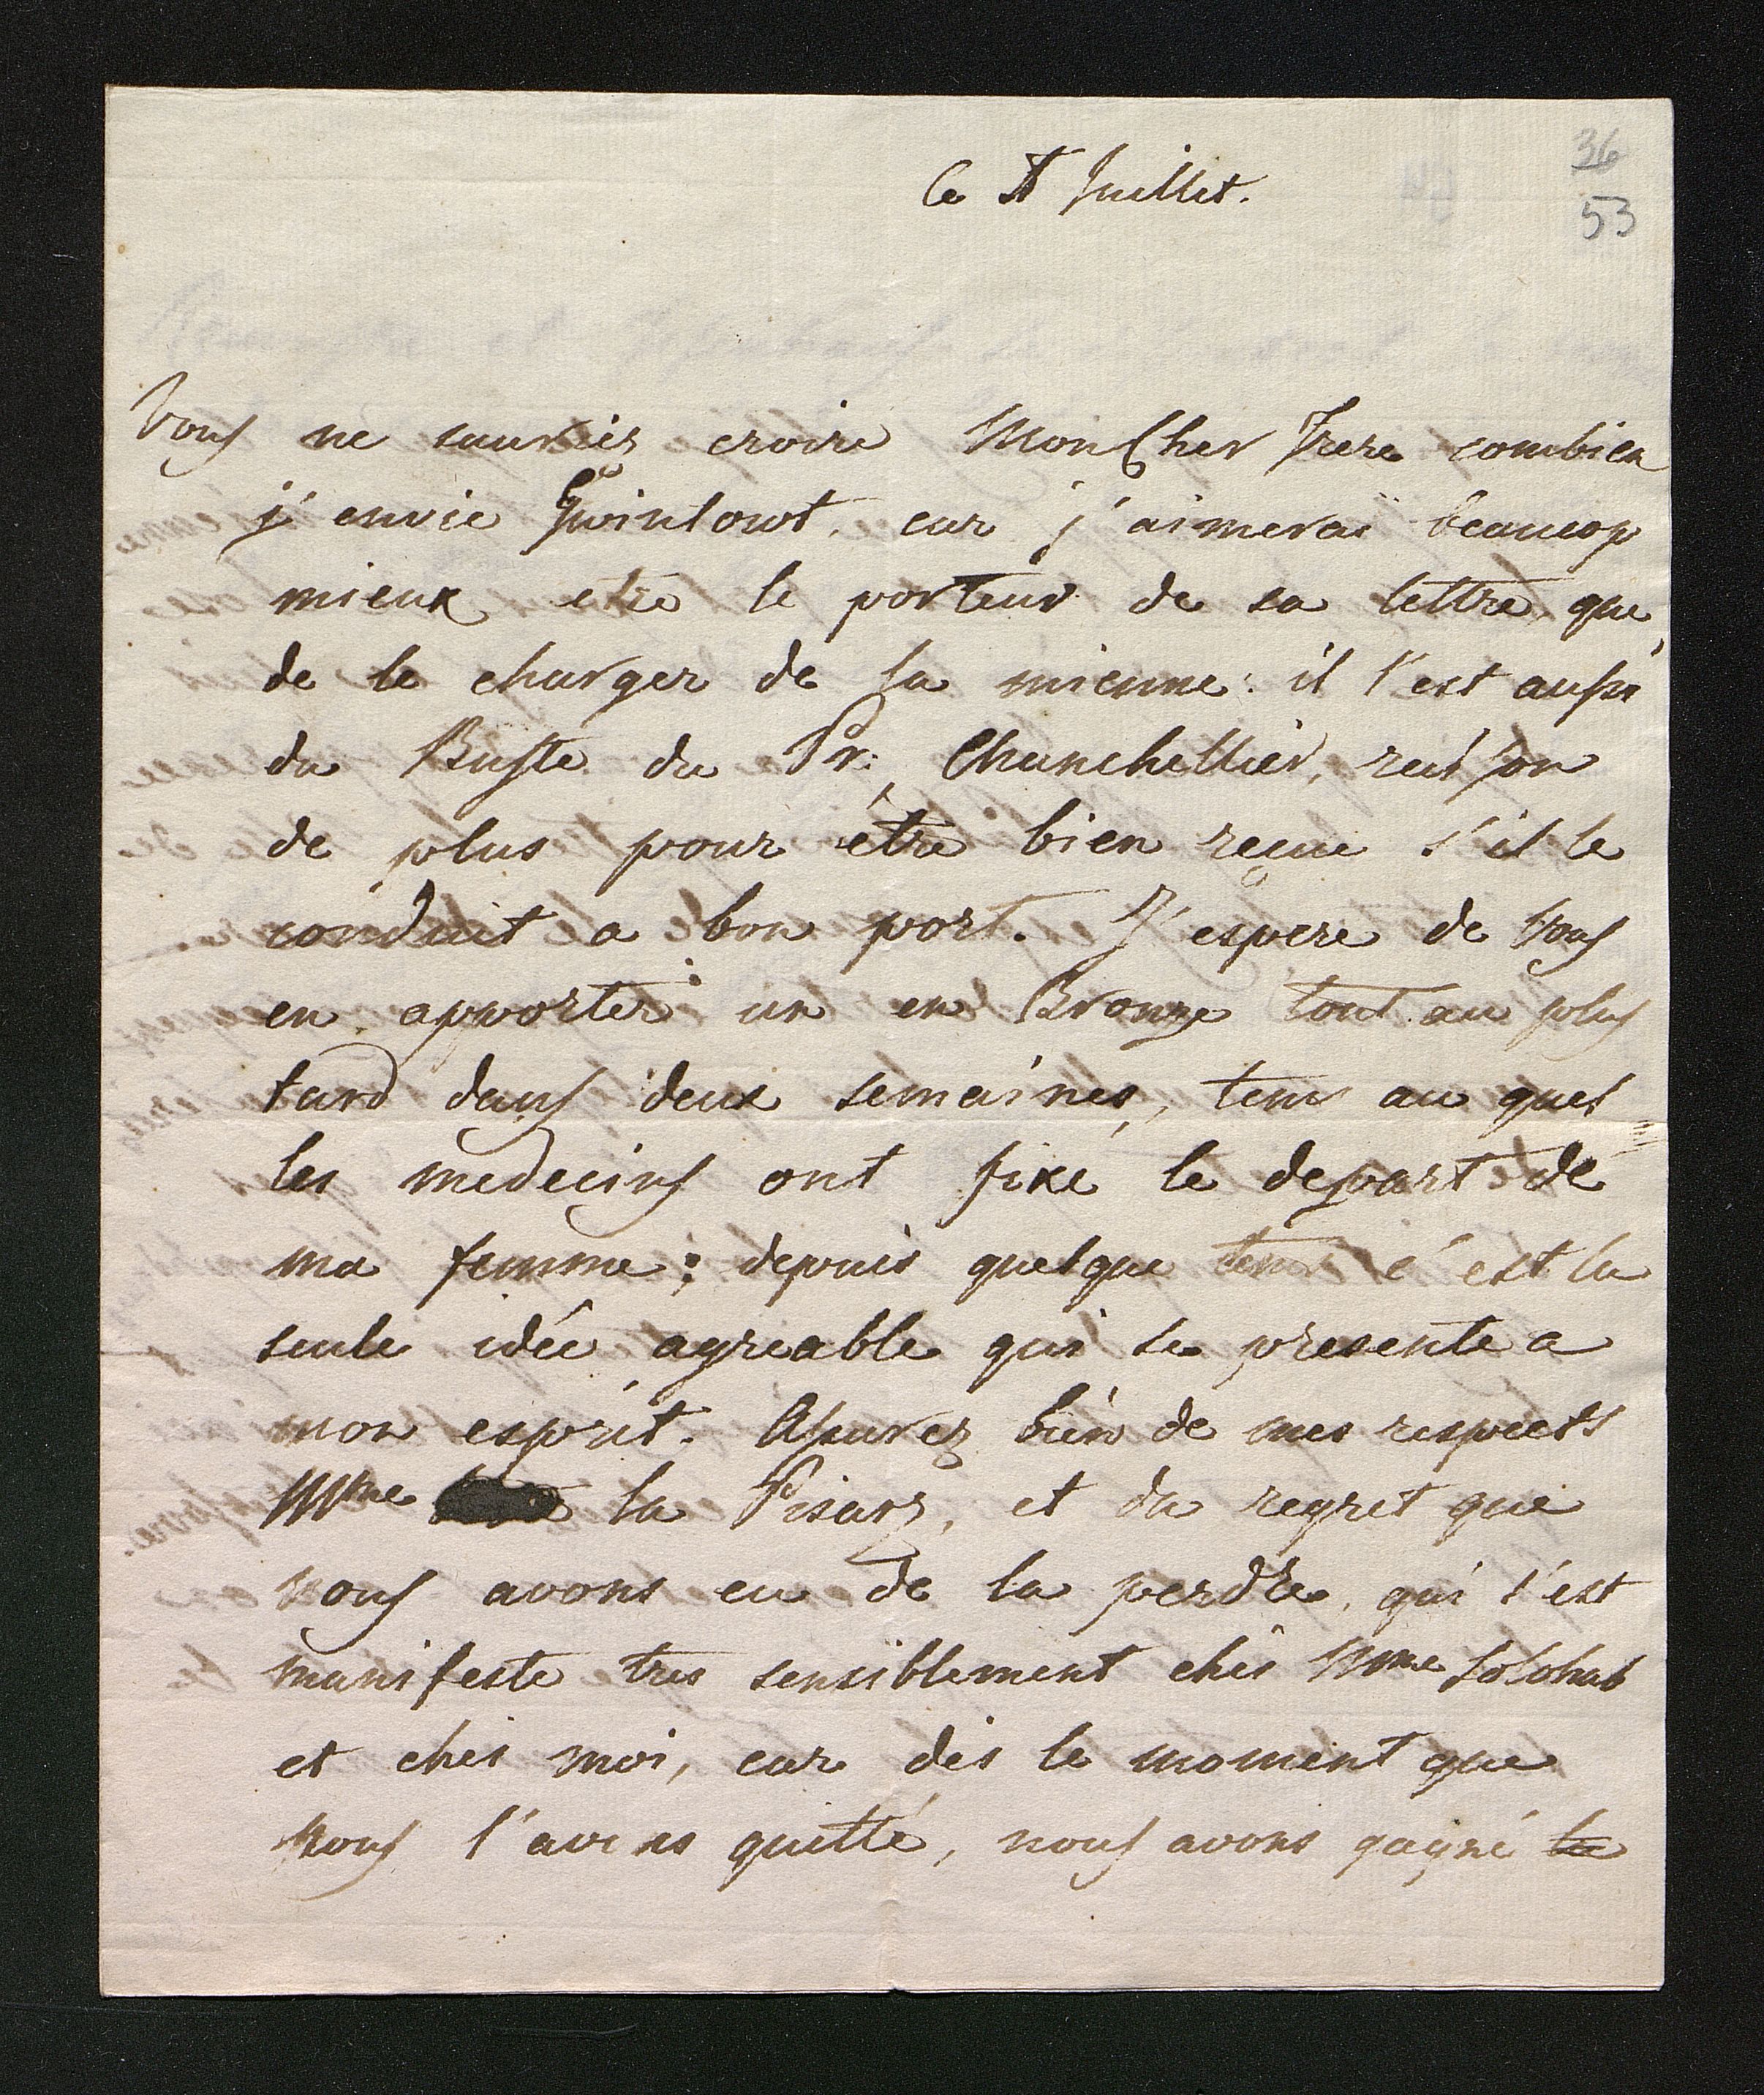 36
53
Ce Juillet.
Vous ne sauriez croire Mon Cher Frere combien
j'envie Gwintowt, car j'aimerai beaucop
mieux etre le porteur de sa lettre que
de le charger de la mienne: il l'est aussi
du Buste du Pr: Chanchellier, raison
de plus pour être bien reçue s'il le
conduit a bon port. J'espere de Vous
en apporter un en Bronze tout au plus
tard dans deux semaines, tems au quel
les medecins ont fixé le depart de
ma femme; depuis quelque tems c'est la
seule idée agreable qui se presente a
mon esprit. Assurez bien de mes respects
Mme la Pisarz, et du regret que
nous avons eu de la perdre, qui s'est
manifeste tres sensiblement chés Mme Solohub
et chés moi, car dès le moment que
nous l'avons quitté, nous avons gagné la